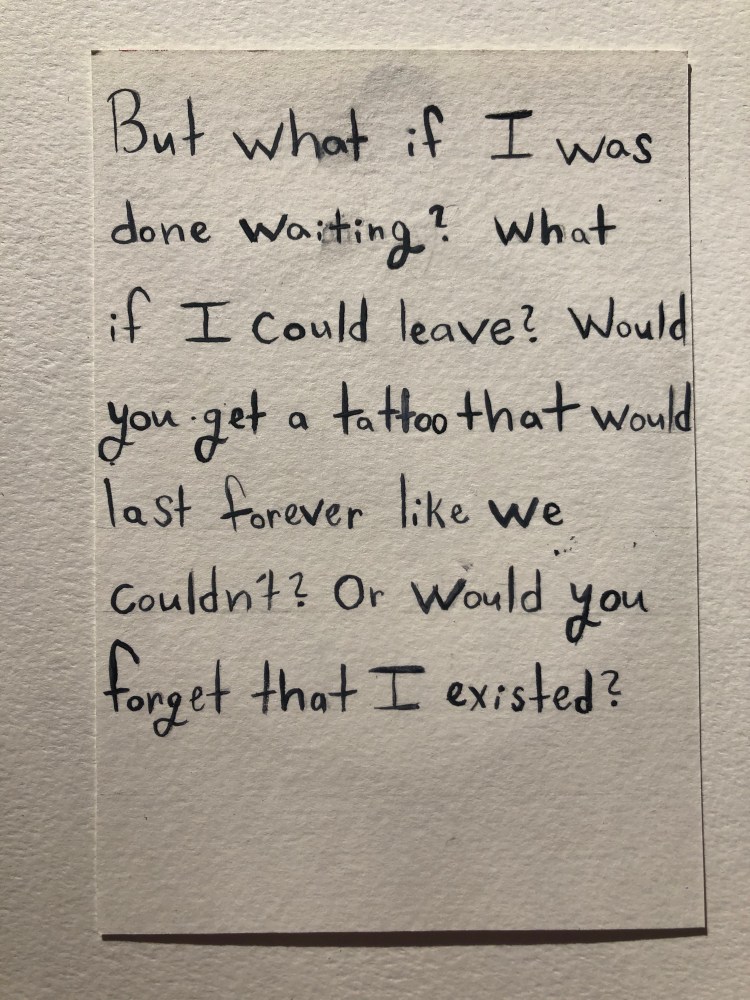 But what if I was
done waiting? What
if I could leave? Would
you get a tattoo that would
last forever like we
couldn't? Or would you
forget that I existed?